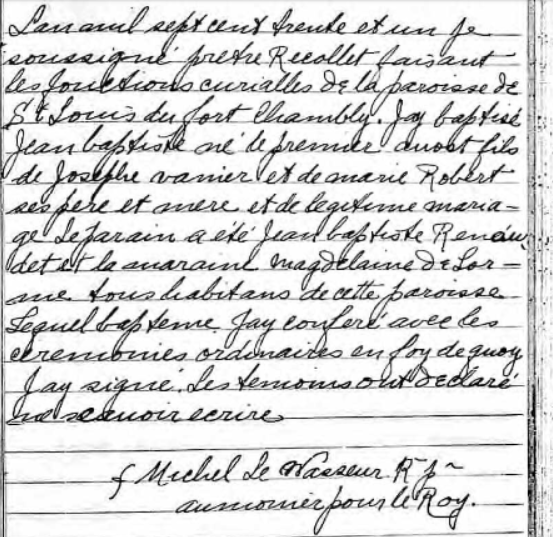 Lan mil sept cent trente et un je
soussigné pretre Recollet faisant
les fonctions curialles de la paroisse de
St Louis du fort Chambly. Jay baptisé
Jean baptiste né le premier aoust fils
de Josephe vanier et de marie Robert
ses pere et mere et de legitime maria-
ge Le parain a été Jean baptiste Renau
det et la maraine magdelaine de Lor-
me tous habitans de cette paroisse
Lequel bapteme Jay conferé avec les
ceremonies ordinaires en foy de quoy
Jay signé. Les temoins ont declaré
ne scavoir ecrire
f Michel Le Vasseur R p
aumonier pour le Roy.